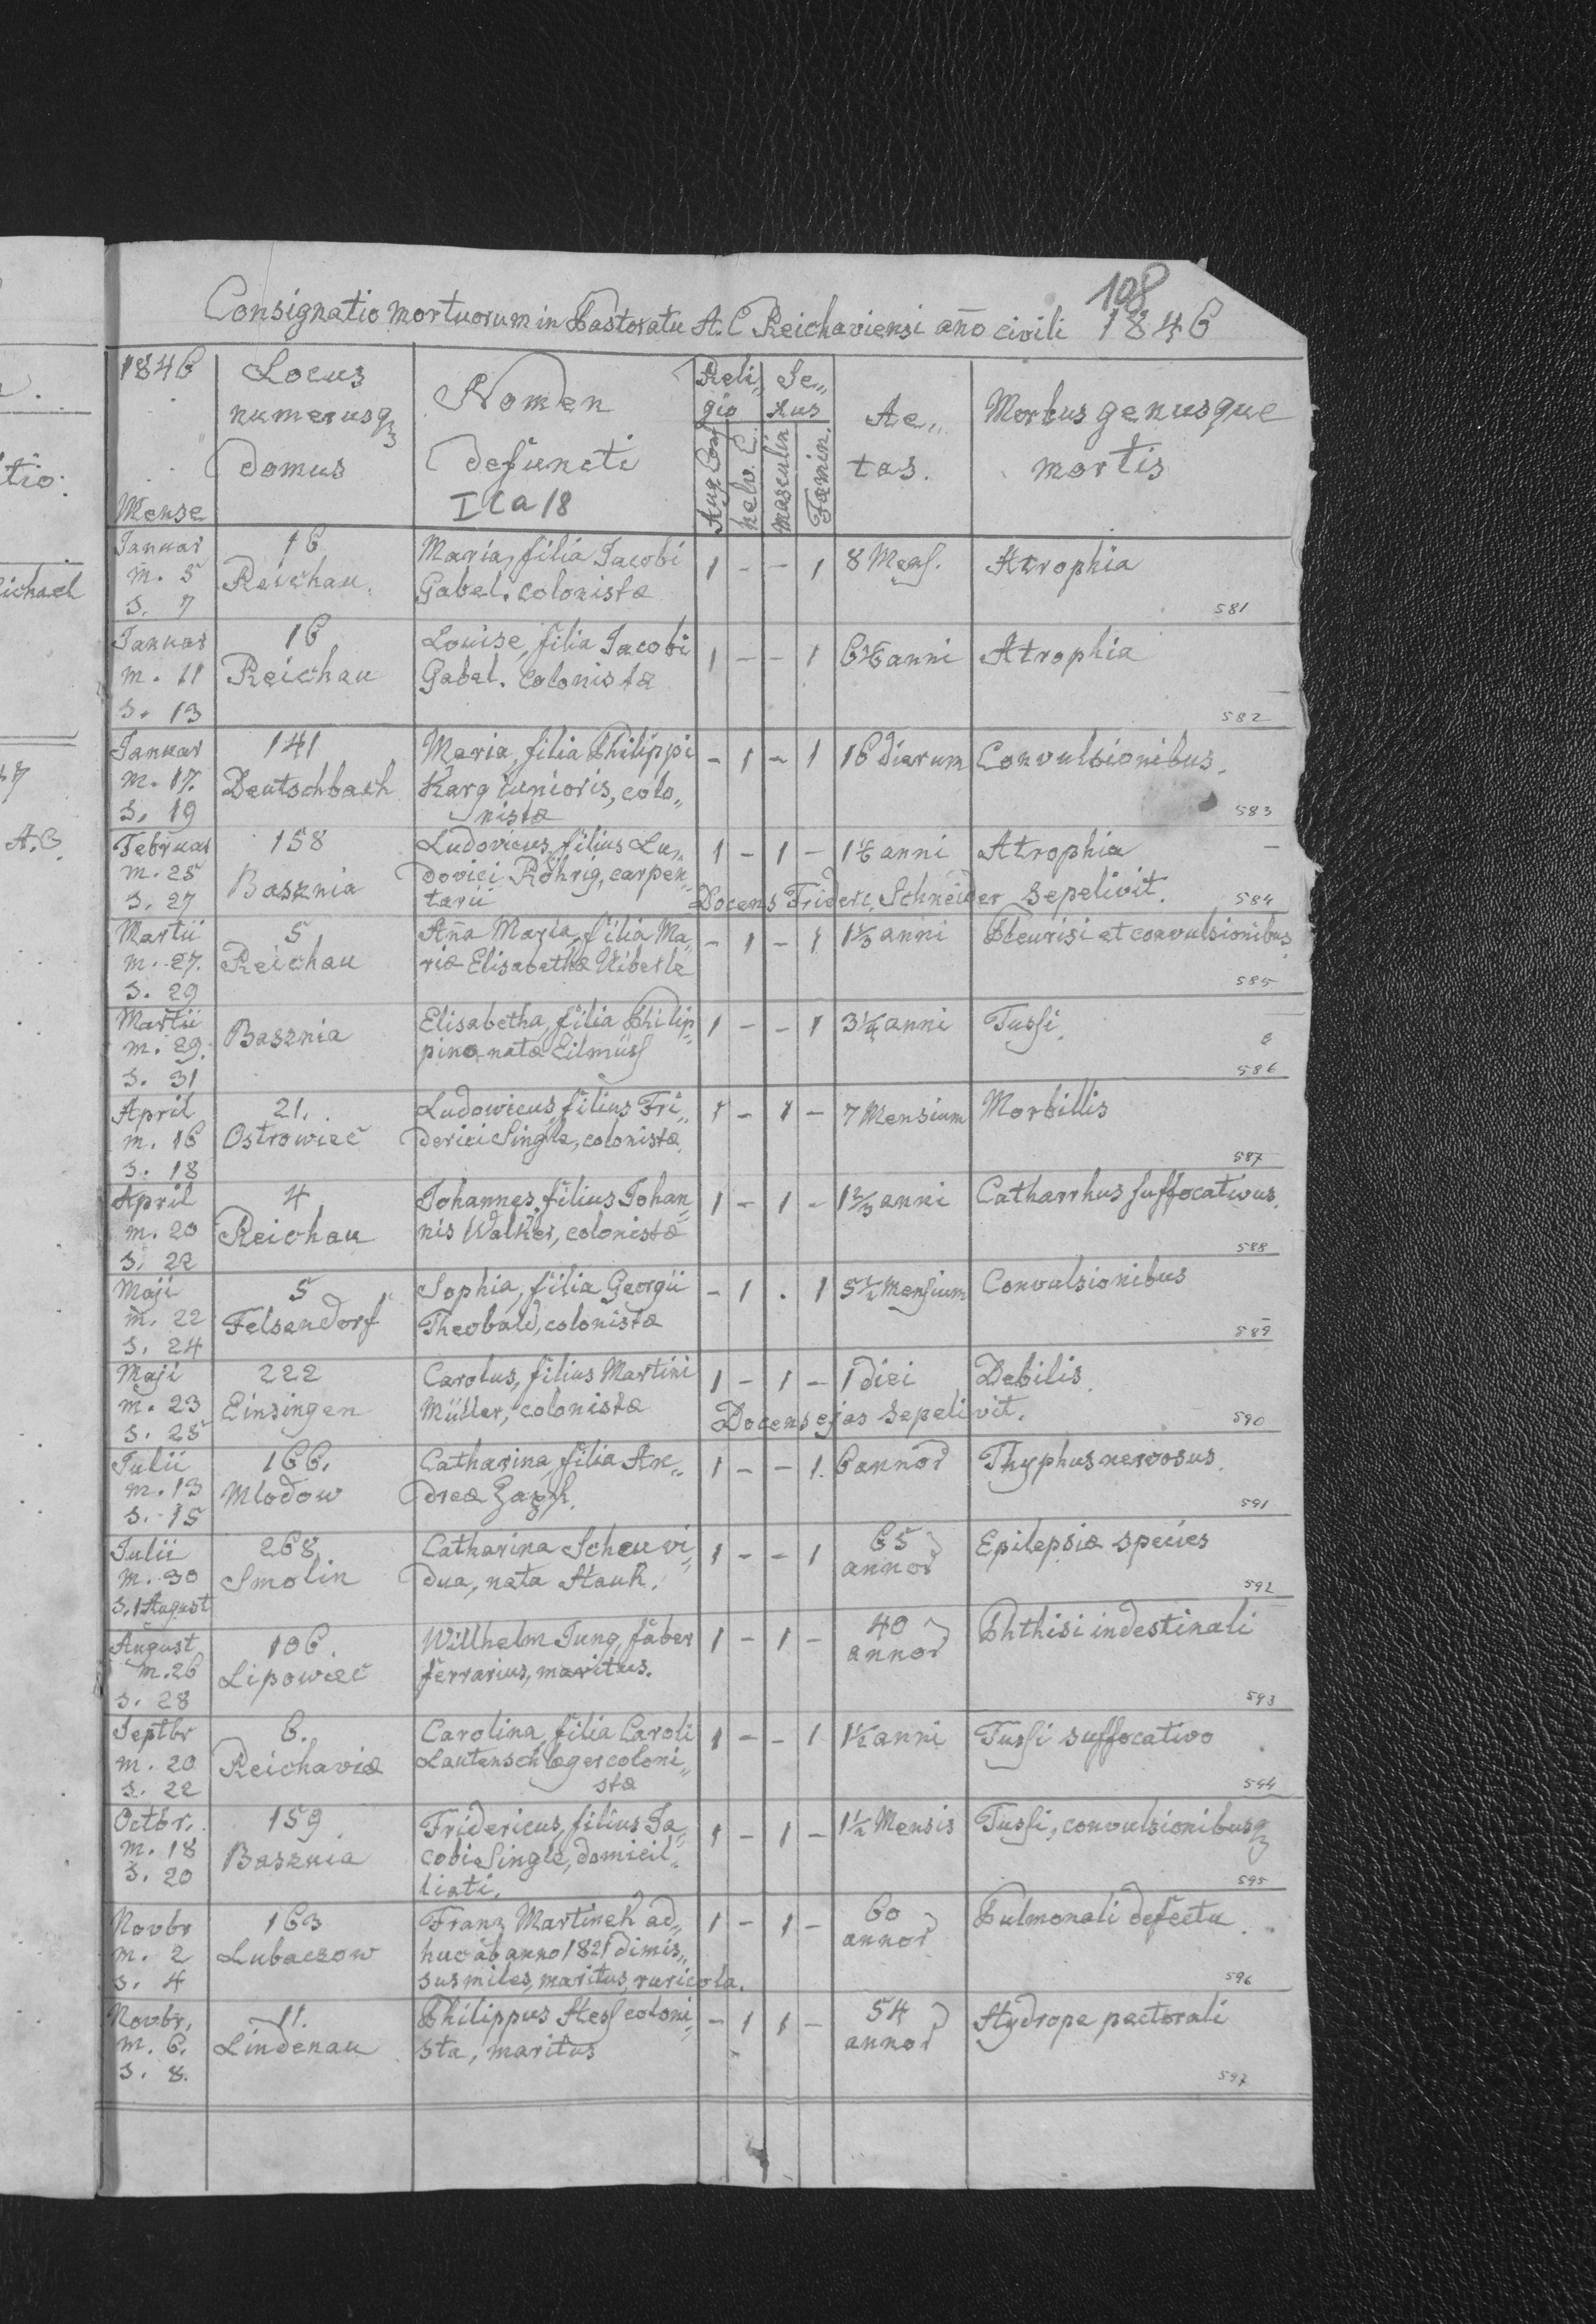 108
Consignatio mortuorum in Pastoratu A. C Reichaviensi año civili 1846
1846
Mense
Locus
numerusq
domus
Nomen
defuncti
I C a 18
Reli„
gio
Aug. Conf
helv. C.
Se„
xus
masculin
Fæmin.
Ae„
tas.
Morbus genusque
mortis
Januar
m. 5
s. 7
16
Reichau.
Maria, filia Jacobi
Gabel. colonistæ
1 - - 1
8 Mens.
Atrophia
581
Januar
m. 11
s. 13
16
Reichau
Louise, filia Jacobi
Gabel. colonistæ
1 - - 1
anni
Atrophia
582
Januar
m. 17.
s. 19
141
Deutschbach
Maria, filia Philippi
Karg iunioris, colo„
nistæ
- 1 - 1
16 dierum
Convulsionibus.
583
Februar
m. 25
s. 27
158
Basznia
Ludovicus, filius Lu„
dovici Röhrig, carpen„
tarii
1 - 1 -
anni
Atrophia
Docens Frideric. Schneider sepelivit.
584
Martii
m. 27.
s. 29
5
Reichau
Aña Maria, filia Ma„
riæ Elisabethæ Uiberle
- 1 - 1
anni
Pleurisi et convulsionibus
585
Martii
m. 29.
s. 31
Basznia
Elisabetha, filia Philip„
pinæ natæ Eilmüss
1 - - 1
3¼ anni
Tussi
586
April
m. 16
s. 18
21.
Ostrowiec
Ludowicus, filius Fri„
derici Single, colonistæ.
1 - 1 -
7 Mensium
Morbillis
587
April
m. 20
s. 22
4
Reichau
Johannes, filius Johan„
nis Walker, colonistæ
1 - 1 -
1⅔ anni
Catharrhus suffocativus.
588
Maji
m. 22
s. 24
5
Felsendorf
Sophia, filia Georgii
Theobald, colonistæ
- 1 . 1
5½ Mensium
Convulsionibus
589
Maji
m. 23
s. 25
222
Einsingen
Carolus, filius Martini
Müller, colonistæ
1 - 1 -
1 diei
Debilis
Docens ejas sepelivit.
590
Julii
m. 13
s. 15
166.
Mlodow
Catharina, filia An„
dreæ
1 - - 1.
6 annor
Thyphus nervosus.
591
Julii
m. 30
s. 1 August
268
Smolin
Catharina Scheu vi„
dua, nata Hauk.
1 - - 1
65
annor
Epilepsiæ species
592
August
m. 26
s. 28
106.
Lipowiec
Willhelm Jung, faber
ferrarius, maritus.
1 - 1 -
40
annor
Phthisi indestinali
593
Septbr
m. 20
s. 22
6.
Reichaviæ
Carolina, filia Caroli
Lautenschlæger coloni„
stæ
1 - - 1
1½ anni
Tussi suffocativo
594
Octbr.
m. 18
s. 20
159
Basznia
Fridericus, filius Ja„
cobi Single, domicil„
liati.
1 - 1 -
1½ Mensis
Tussi, convulsionibusq
595
Novbr
m. 2
s. 4
163
Lubaczow
Franz Martinek ad„
huc ab anno 1821 dimis„
sus miles, maritus, ruricola.
1 - 1 -
60
annor
Pulmonali defectu
596
Novbr.
m. 6.
s. 8.
11.
Lindenau
Philippus Hess coloni„
sta, maritus
- 1 1 -
54
annor
Hydrope pectorali
597
tio.
ichael
A.C.